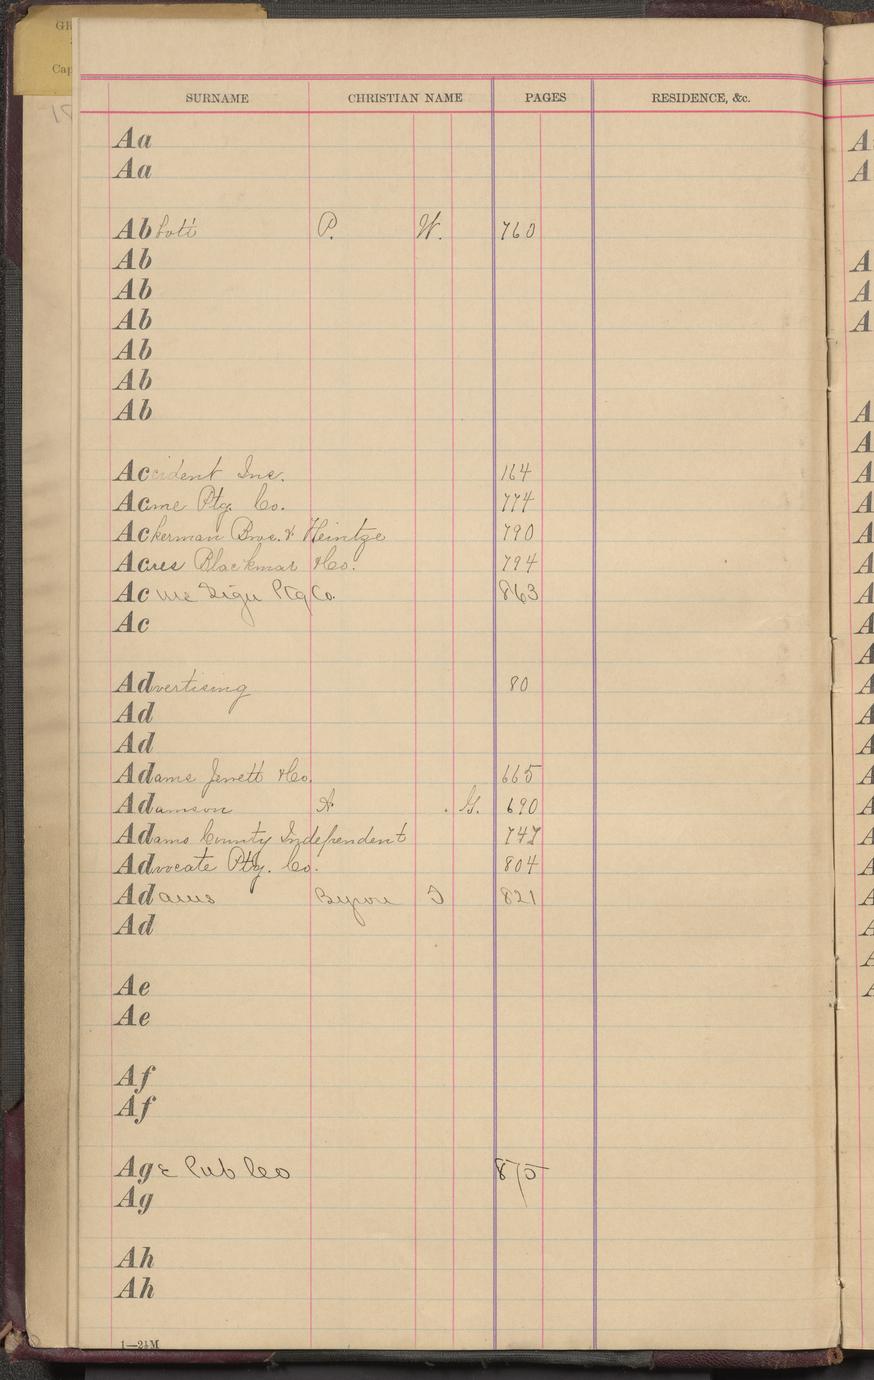 GR
Cap
SURNAME CHRISTIAN NAME PAGES RESIDENCE, &c.
Aa
Aa
Abbott P. W. 760
Ab
Ab
Ab
Ab
Ab
Ab
Accident Ins. 164
Acme Ptg. Co. 774
Ackerman Bros. & Heintze 790
Acres Blackmar & Co. 794
Acme Sign Ptg Co. 863
Ac
Advertising 80
Ad
Ad
Adams Jewett & Co. 665
Adamson A. G. 690
Adams County Independent 747
Advocate Ptg. Co. 804
Adams Byron S 821
Ad
Ae
Ae
Af
Af
Age Pub Co 875
Ag
Ah
Ah
1—24M